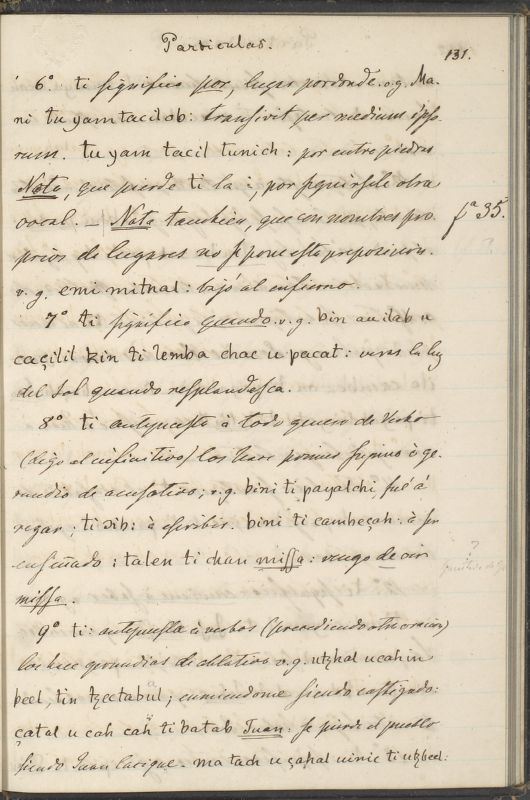 Particulas.
131.
6º ti significa por, lugar pordonde. v.g. Ma-
ni tu yam tacilob: transivit per medium ipso-
rum. tu yam tacil tunich: por entre piedras
Nota, que pierde ti la i, por seguirsele otra
vocal. — Nota tambien, que con nombres pro-
fª 35.
prios de lugares no se pone esta preposicion.
v.g. emi mitnal: bajó al infierno.
7º ti significa quando. v.g. bin auilab u
caçilil kin ti lemba chac u pacat: veras la luz
del sol quando resplandesca.
8º ti antepuesto à todo genero de Verbo
(digo al infinitivo) los hace primer supino ò ge-
rundio de acusativo; v.g. bini ti payalchi, fué á
rogar; ti ɔib: à escribir. bini ti cambeçah: à ser
enseñado; talen ti chan missa: vengo de oir
missa.
9º ti: antepuesta à verbos (precediendo otra oracion)
los hace gerundios de ablativo v.g. utzhal ucah in
beel, tin tzectabal; enmiendome siendo castigado:
çatal u cah cah ti batab Juan: se pierde el pueblo
siendo Juan Cacique. ma tach u çahal uinic ti utzbeel: